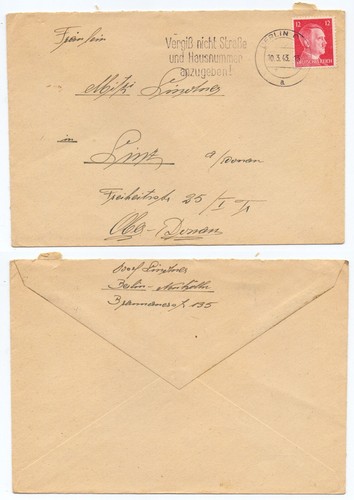 Fräulein
Vergiß nicht Straße
und Hausnummer
anzugeben!
BERLIN
10.3.43.
a
12 12
DEUTSCHES REICH
Mitzi
in
Linz a/Donau
Freiheitsstr 25/I
Ober-Donau
Josef
Berlin-Neukölln
135